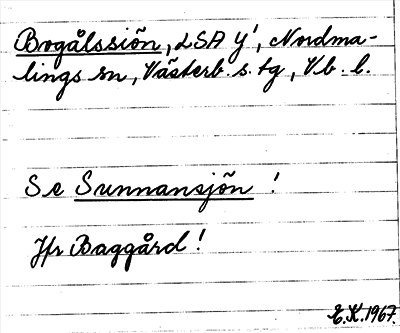 Bogålssiön, LSA y', Nordma-
lings sn, Västerb. s. tg, Vb. l.
Se Sunnansjön !
Jfr Baggård !
E.K. 1967.